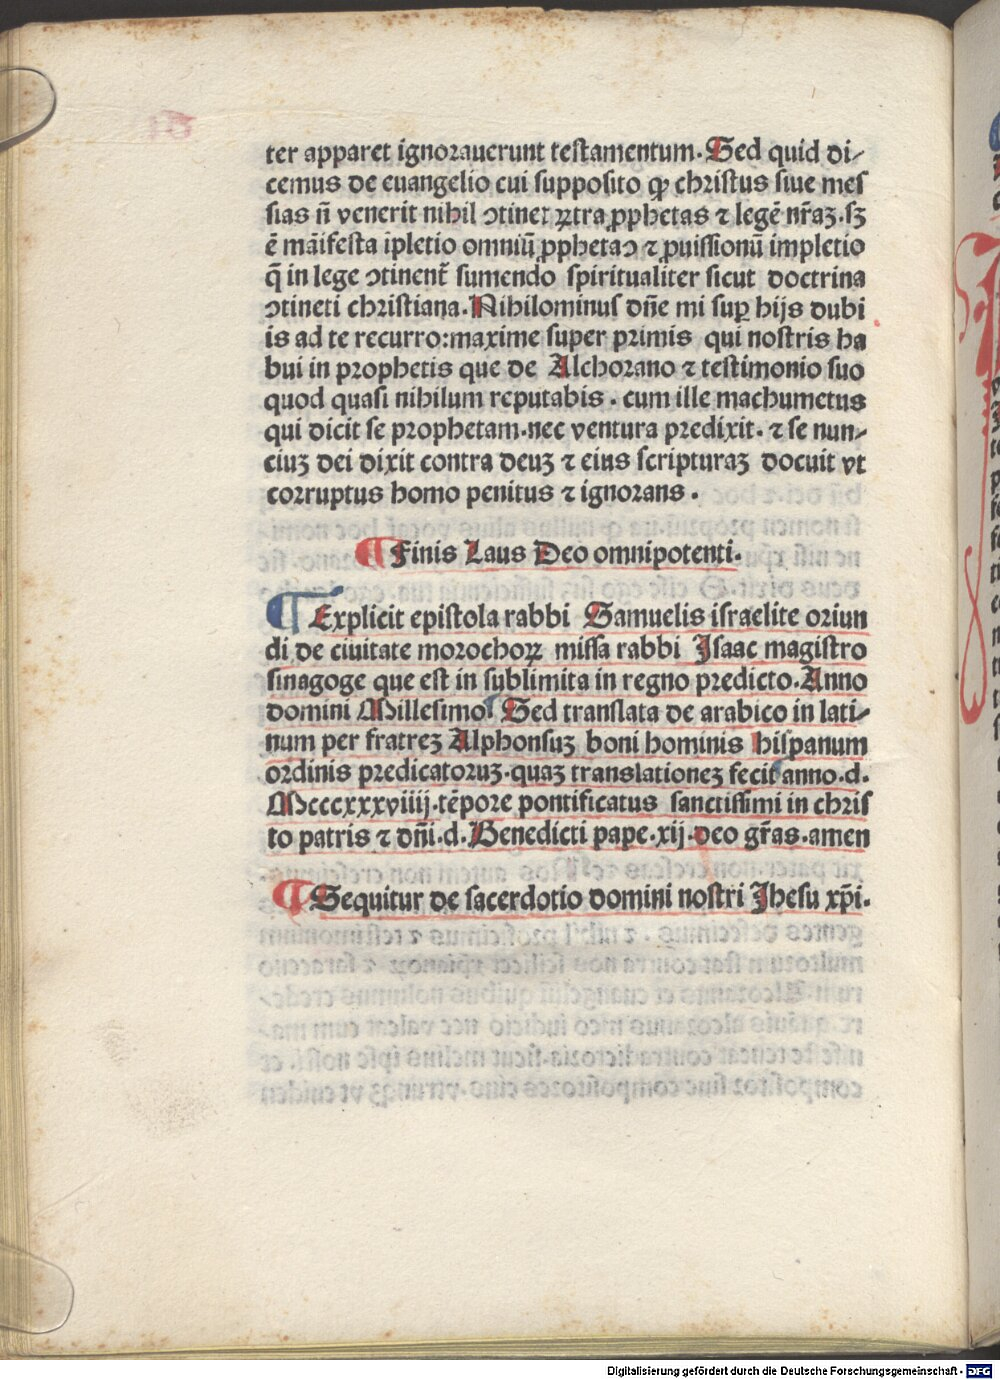 ter apparet ignorauerunt testamentum. Sed quid di⸗
cemus de euangelio cui supposito ꝙ christus siue mes
sias nō venerit nihil ↄtinet extra ꝓphetas ⁊ legē nr̄aꝫ. sꝫ
ē māifesta ipletio omniū ꝓphetaꝝ ⁊ ꝓuissionū impletio
q̄ in lege ↄtinent̄ sumendo spiritualiter sicut doctrina
ↄtineti christiana. Nihilominus dn̄e mi suꝑ hijs dubi
is ad te recurro: maxime super primis qui nostris ha
bui in prophetis que de Alchorano ⁊ testimonio suo
quod quasi nihilum reputabis. cum ille machumetus
qui dicit se prophetam. nec ventura predixit. ⁊ se nun⸗
ciuꝫ dei dixit contra deuꝫ ⁊ eius scripturaꝫ docuit vt
corruptus homo penitus ⁊ ignorans.
¶ Finis Laus Deo omnipotenti.
¶ Explicit epistola rabbi Samuelis israelite oriun
di de ciuitate morochoꝝ missa rabbi Isaac magistro
sinagoge que est in sublimita in regno predicto. Anno
domini Millesimo. Sed translata de arabico in lati⸗
num per fratreꝫ Alphonsuꝫ boni hominis hispanum
ordinis predicatoruꝫ. quaꝫ translationeꝫ fecit anno. d.
Mcccxxxviiij. tēpore pontificatus sanctissimi in chris
to patris ⁊ dn̄i. d. Benedicti pape. xij. deo gr̄as. amen
¶ Sequitur de sacerdotio domini nostri Jhesu xp̄i.
Digitalisierung gefördert durch die Deutsche Forschungsgemeinschaft - DFG